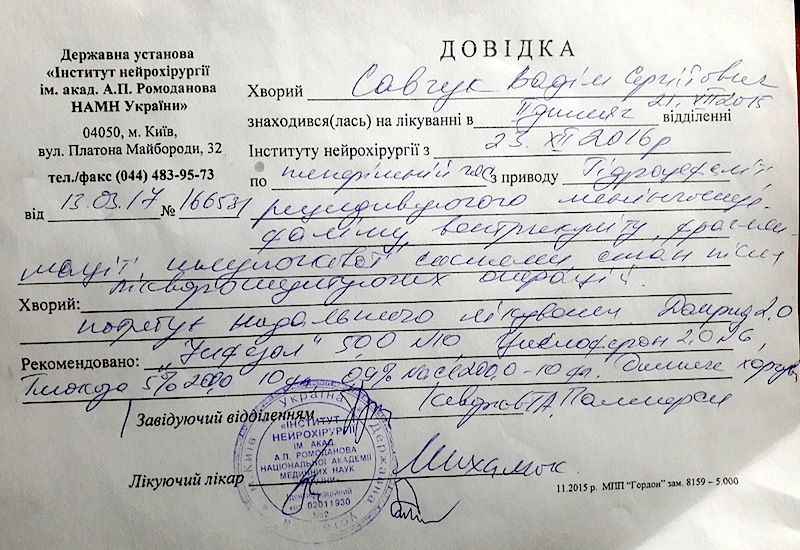 Державна установа
«Інститут нейрохірургії
ім. акад. А.П. Ромоданова
НАМН України»
04050, м. Київ,
вул. Платона Майбороди, 32
тел./факс (044) 483-95-73
від 13.03.17 № 166531
ДОВІДКА
Хворий Савчук Вадім Сергійович
21. VII 2015
знаходився(лась) на лікуванні в відділенні
Інституту нейрохірургії з 23. XII 2016р
по час з приводу Гідроцефалії
рецидивуючого менінгоенце
фаліту, вентрикуліту,
системи стан після
операцій.
Хворий:
потребує подальшого лікування. 2.0
Рекомендовано: 500 N10 2.0 N6,
5% 200,0 10 фл. 0,9% NaCl 200,0 - 10 фл.
Завідуючий відділенням
Лікуючий лікар Михалюк
Україна
Державна
м. Київ
«ІНСТИТУТ
НЕЙРОХІРУРГІЇ
ІМ. АКАД.
А.П. РОМОДАНОВА
НАЦІОНАЛЬНОЇ АКАДЕМІЇ
МЕДИЧНИХ НАУК
Ідентифікаційний
код 02011930
№2
11.2015 р. МПП “Гордон” зам. 8159 – 5.000